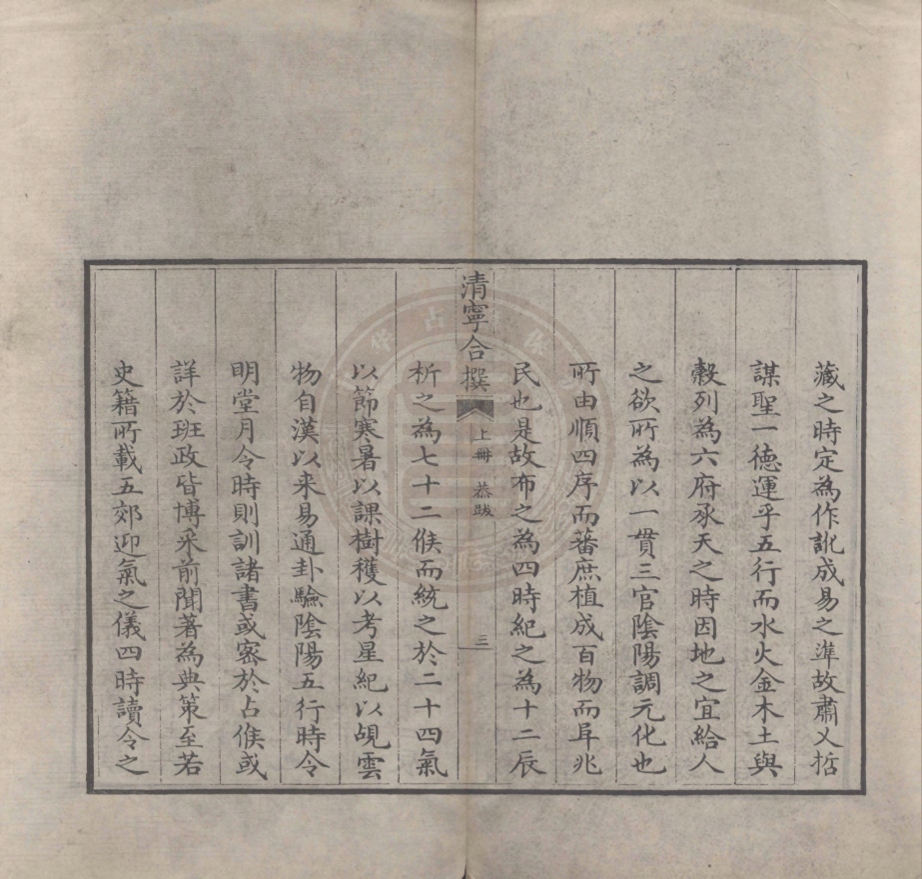 藏之時定為作訛成易之準故肅乂哲
謀聖一德運乎五行而水火金木土與
穀列為六府承天之時因地之宜給人
之欲所為以一貫三官陰陽調元化也
所由順四序而蕃庶植成百物而阜兆
民也是故布之為四時紀之為十二辰
清寧合撰
上冊 恭跋
三
析之為七十二候而統之於二十四氣
以節寒暑以課樹穫以考星紀以覘雲
物自漢以来易通卦驗陰陽五行時令
明堂月令時則訓諸書或密於占候或
詳於班政皆博采前聞著為典策至若
史籍所載五郊迎氣之儀四時讀令之